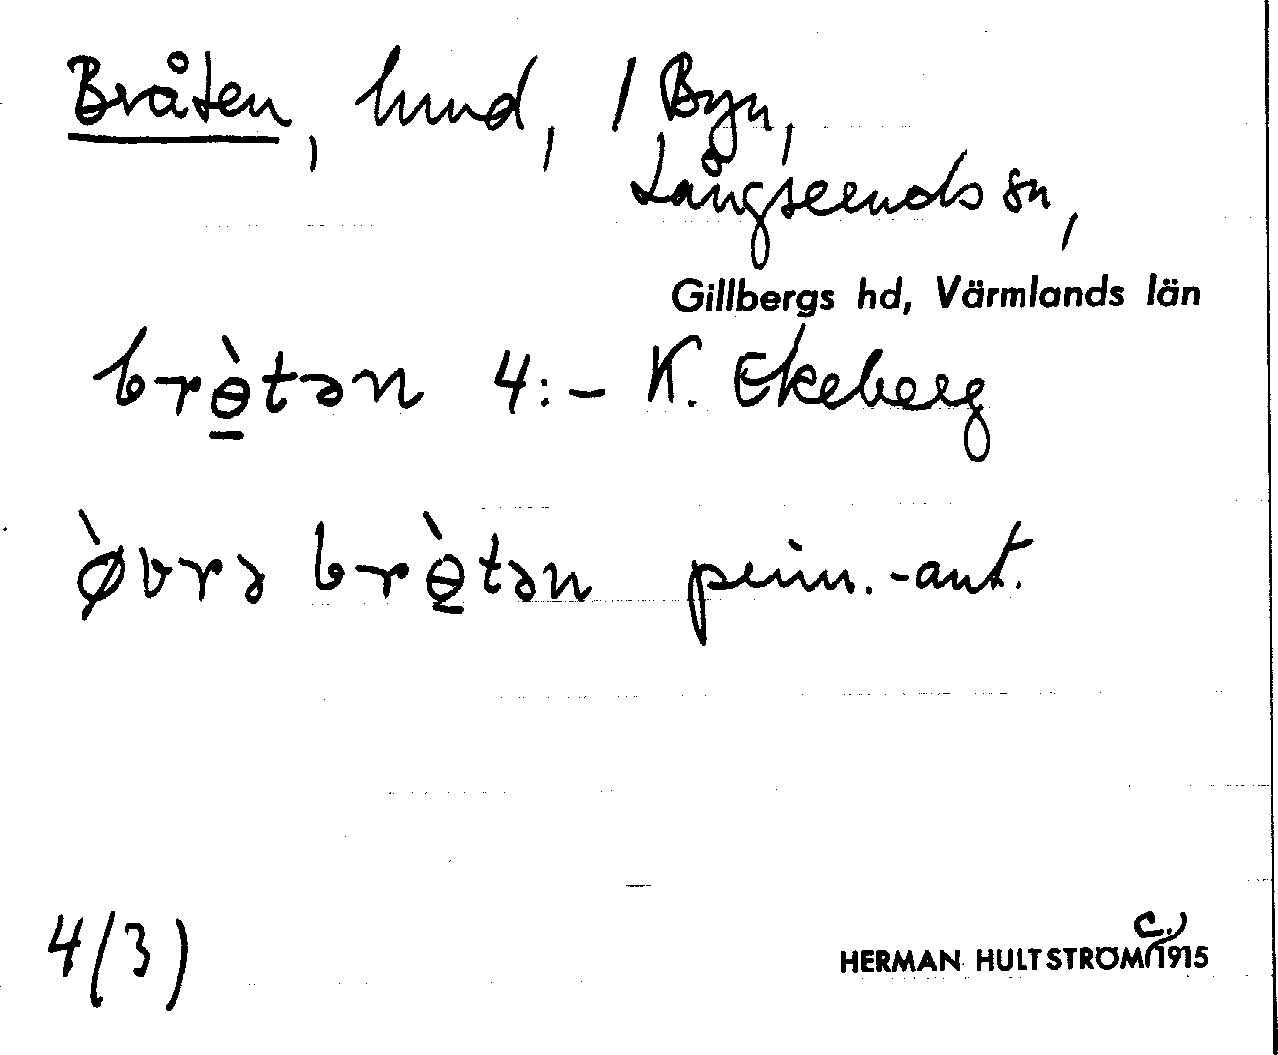 Bråten, hmd, 1 Byn,
Långseruds sn,
Gillbergs hd, Värmlands län
brɵ̱̀tən 4:- K. Ekeberg
ø̀vrə brɵ̱̀tən prim.-ant.
4(3)
HERMAN HULTSTRÖM c. 1915